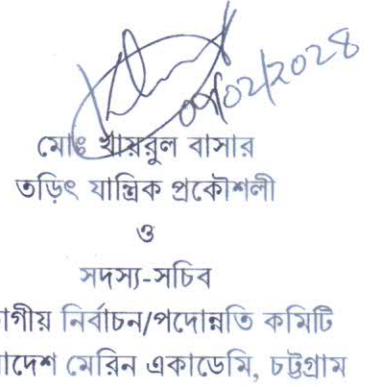 ০৭/০২/২০২৪
মোঃ খায়রুল বাসার
তড়িৎ যান্ত্রিক প্রকৌশলী
ও
সদস্য-সচিব
গীয় নির্বাচন/পদোন্নতি কমিটি
াদেশ মেরিন একাডেমি, চট্টগ্রাম